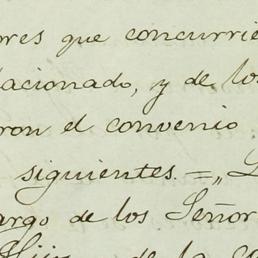 ores que concurrie
lacionado, y de los
ron el convenio
siguientes. = "L
argo de los Señor
Hijos de la co